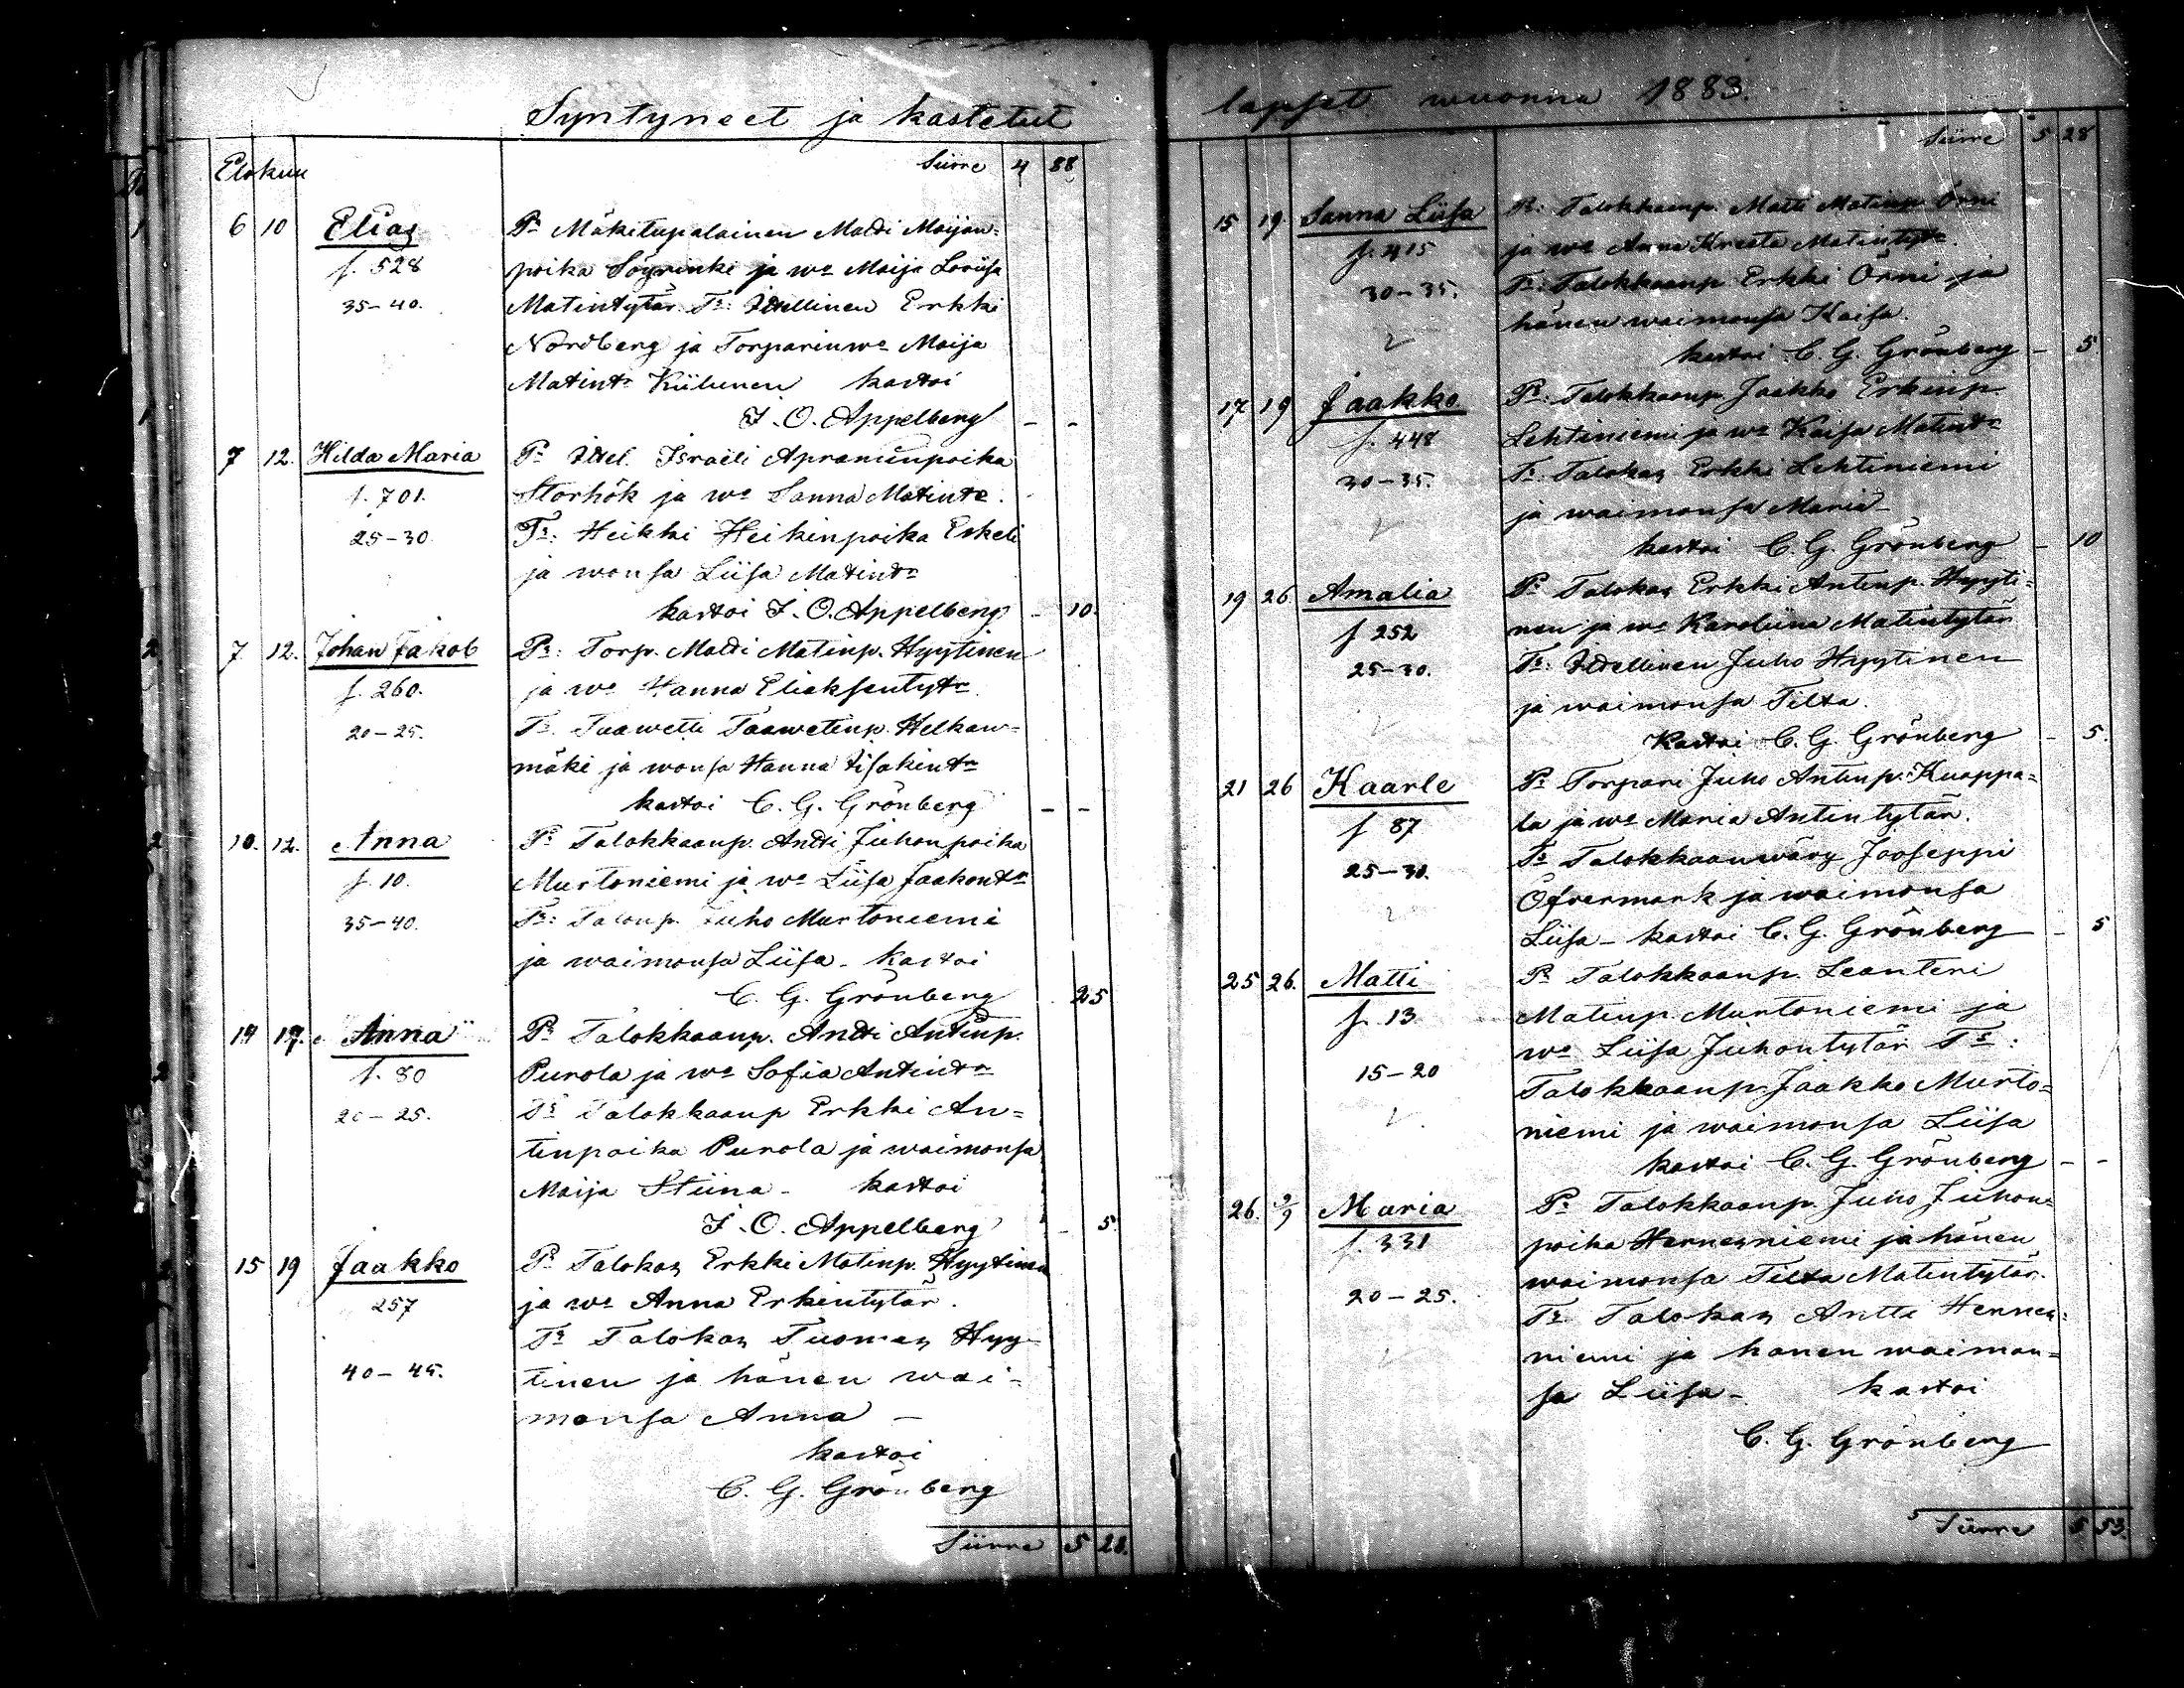 Syntyneet ja kastetut
Elokuu
Siirre 4 88
6 10 Elias Pr Mäkitupalainen Matti Maijan=
f. 528 poika Söyrinki ja wo Maija Loviisa
35-40. Matintytär. Tr: Itsellinen Erkki
Nordberg ja Torparinwo Maija
Matintr Kiilunen kastoi
F. O. Appelberg - -
7 12. Hilda Maria Pr Itsel. Israeli Apraminpoika
f. 701. Storhök ja wo Sanna Matintr.
25-30 Tr: Heikki Heikinpoika Eskeli
ja wonsa Liisa Matintr
kastoi F. O. Appelberg - 10.
7 12. Johan Jakob Pr: Torp. Matti Matinp. Hyytinen
f. 260. ja wo Hanna Eliaksentytr.
20-25. Tr. Taawetti Taawetinp. Helkaw=
mäki ja wonsa Hanna Iisakintr
kastoi C. G. Grönberg - -
10. 12. Anna Pr Talokkaanp. Antti Juhonpoika
f. 10. Murtoniemi ja wo Liisa Jaakontr
35-40. Tr: Talonp. Juho Murtoniemi
ja waimonsa Liisa - Kastoi
C. G. Grönberg 25
14 17. Anna Pr Talokkaanp. Antti Antinp.
f. 80 Purola ja wo Sofia Antintr
20-25. Tr Talokkaanp Erkki An=
tinpoika Purola ja waimonsa
Maija Stiina - kastoi
F. O. Appelberg - 5.
15 19 Jaakko Pr Talokas Erkki Matinp. Hyytinen
257 ja wo Anna Erkintytär.
Tr Talokas Tuomas Hyy=
40-45. tinen ja hänen wai=
monsa Anna -
kastoi
C. G. Grönberg
Siirre 5 28.
lapset wuonna 1883.
Siirre 5 28
15 19 Sanna Liisa Pr: Talokkaanp. Matti Matinp. Örni
f. 415 ja wo Anna Kreeta Matintytr.
30-35. Tr: Talokkaanp Erkki Örni ja
hänen waimonsa Kaisa.
kastoi C. G. Grönberg - 5
17 19 Jaakko Pr: Talokkaanp. Jaakko Erkinp.
f. 448 Lehtiniemi ja wo Kaisa Matintr
30-35. Tr: Talokas Erkki Lehtiniemi
ja waimonsa Maria -
kastoi C. G. Grönberg - 10
19 26 Amalia Pr Talokas Erkki Antinp. Hyyti=
f 252 nen ja wo Karoliina Matintytär
25-30. Tr: Itsellinen Juho Hyytinen
ja waimonsa Tilta.
Kastoi C. G. Grönberg - 5.
21 26 Kaarle Pr Torpari Juho Antinp. Kuoppa=
f 87 la ja wo Maria Antintytär.
25-30. Tr Talokkaanwäry Jooseppi
Öfvermark ja waimonsa
Liisa - kastoi C. G. Grönberg - 5
25 26. Matti Pr Talokkaanp. Leanteri
f. 13 Matinp. Murtoniemi ja
wo Liisa Juhontytär Tr:
15-20 Talokkaanp. Jaakko Murto=
niemi ja waimonsa Liisa
kastoi C. G. Grönberg - -
26. 2/9 Maria Pr Talokkaanp. Juho Juhon=
f. 331 poika Hernesniemi ja hänen
waimonsa Tilta Matintytär.
20-25. Tr Talokas Antti Hernes=
niemi ja hänen waimon=
sa Liisa - kastoi
C. G. Grönberg
Siirre 5 53.